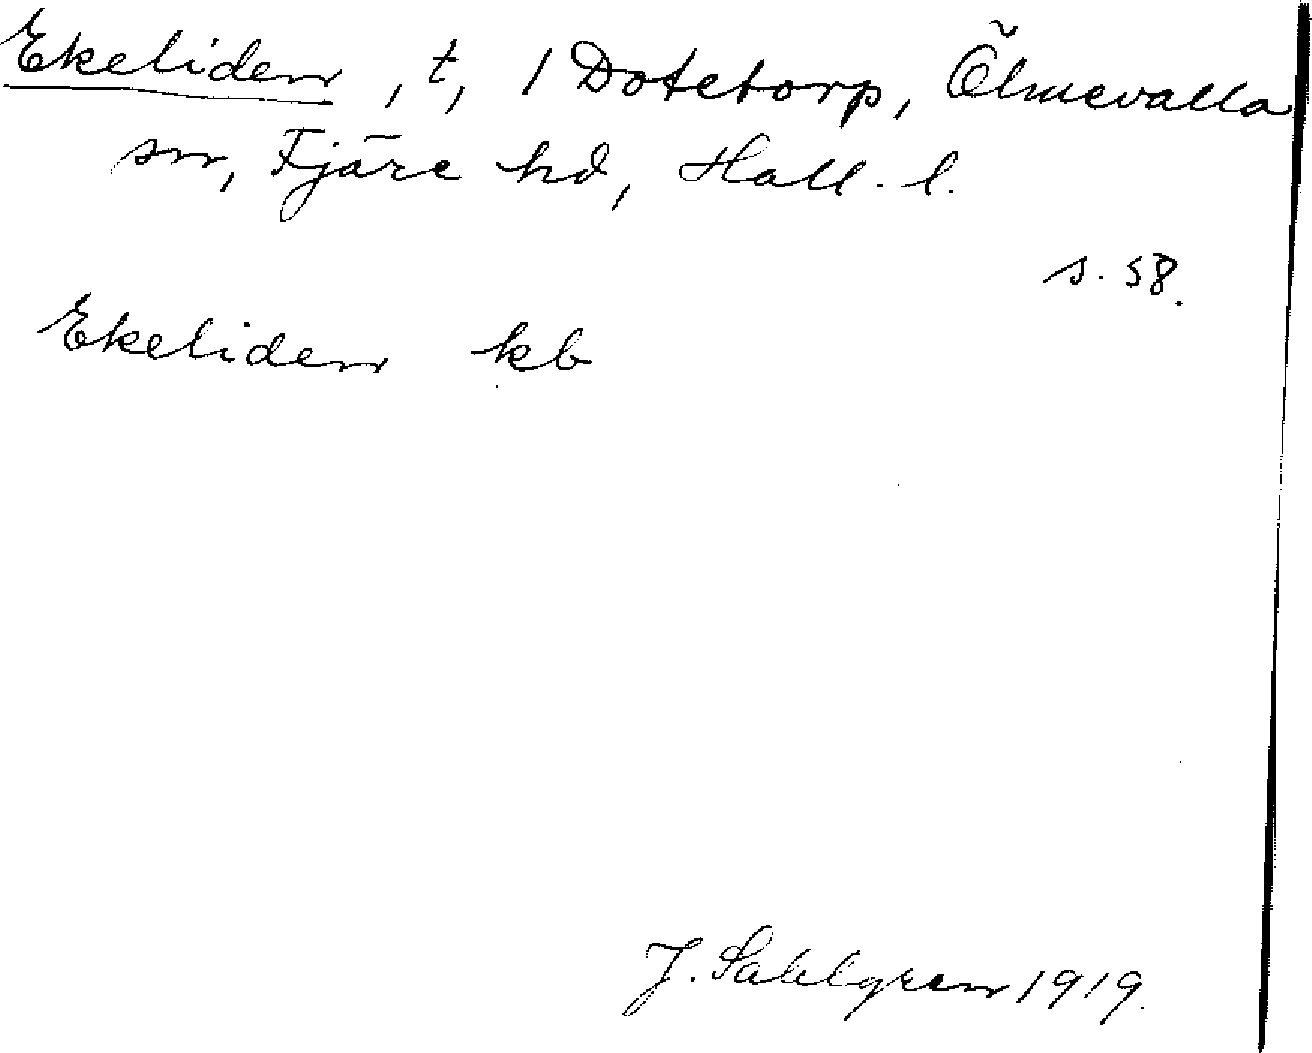 Ekeliden, t, / Dotetorp, Ölmevalla
sn, Fjäre hd, Hall. l.
s. 58.
Ekeliden kb
J. Sahlgren 1919.